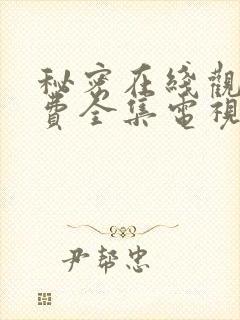 秘密在綫觀
費全集電視
尹幫忠